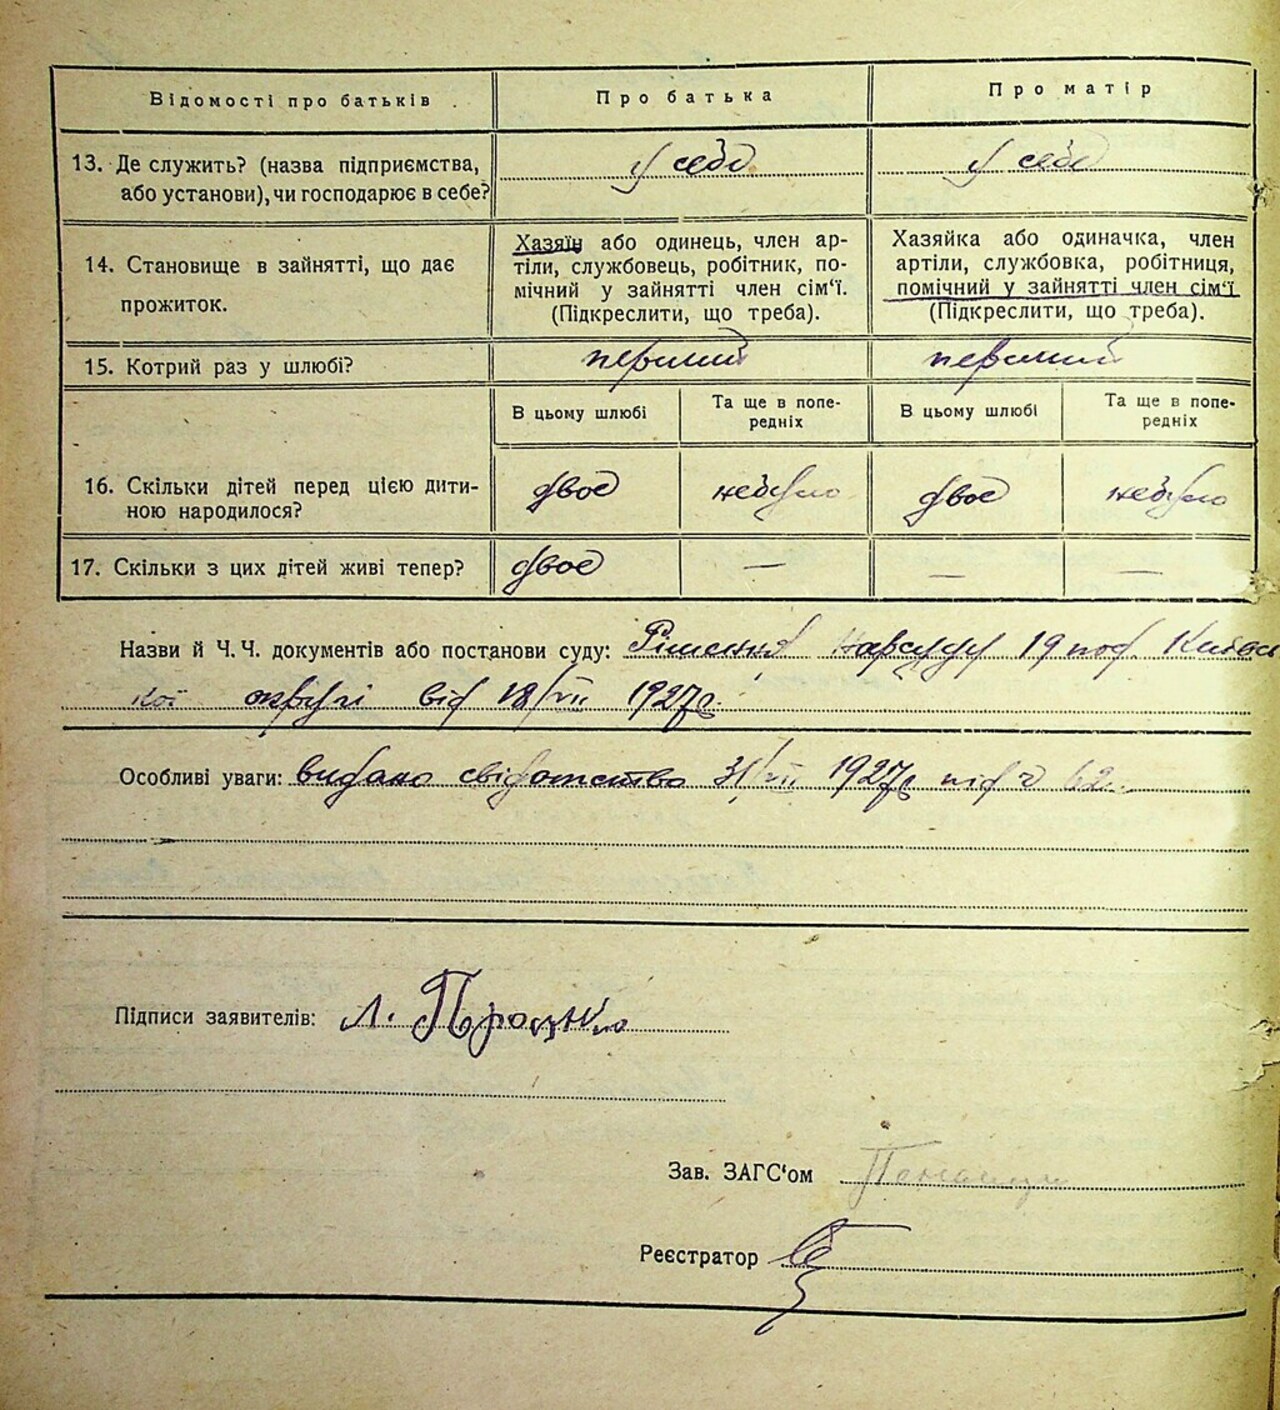 Відомості про батьків Про батька Про матір
13. Де служить? (назва підприємства, у себе у себе
або установи), чи господарює в себе?
14. Становище в зайнятті, що дає
прожиток.
Хазяїн або одинець, член ар-
тіли, службовець, робітник, по-
мічний у зайнятті член сім'ї.
(Підкреслити, що треба).
Хазяйка або одиначка, член
артіли, службовка, робітниця,
помічний у зайнятті член сім'ї
(Підкреслити, що треба).
15. Котрий раз у шлюбі? перший перший
В цьому шлюбі
Та ще в попе-
редніх
В цьому шлюбі
Та ще в попе-
редніх
16. Скільки дітей перед цією дити-
ною народилося?
двоє небуло двоє небуло
17. Скільки з цих дітей живі тепер? двоє — — —
Назви й Ч. Ч. документів або постанови суду: Рішення Нарсуду 19 Київсь
кої округі від 18/VII 1927р.
Особливі уваги: видано свідотство 31/VII 1927р під ч 62
Підписи заявителів: Л. Проценко
Зав. ЗАГС'ом
Реєстратор